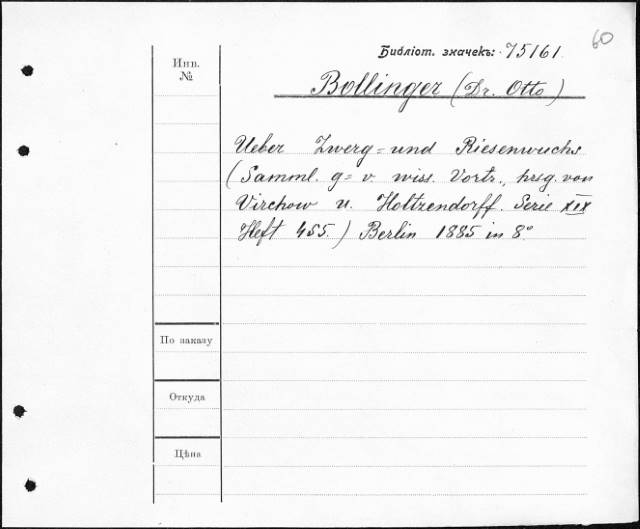 60
Библіот. значекъ: 75161.
Инв.
№
Bollinger (Dr. Otto)
Ueber Zwerg= und Riesenwuchs
(Samml. g= v. wiss. Vortr., hrsg. von
Virchow u. Holtzendorff. Serie XIX
Heft 455.) Berlin 1885 in 8°
По заказу
Откуда
Цѣна